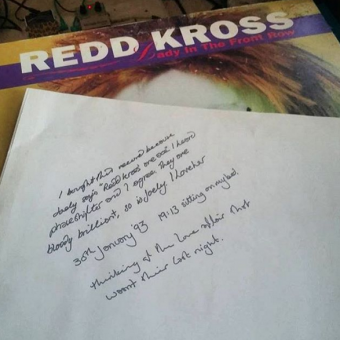 REDD KROSS
Lady In The Front Row
I bought this record because
says "Redd Kross are cool. I heard
phaseshifter and I agree, they are
bloody brilliant, so is I love her
30th January '93 19:13 sitting on my bed
thinking of the love affair that
wasn't their last night.